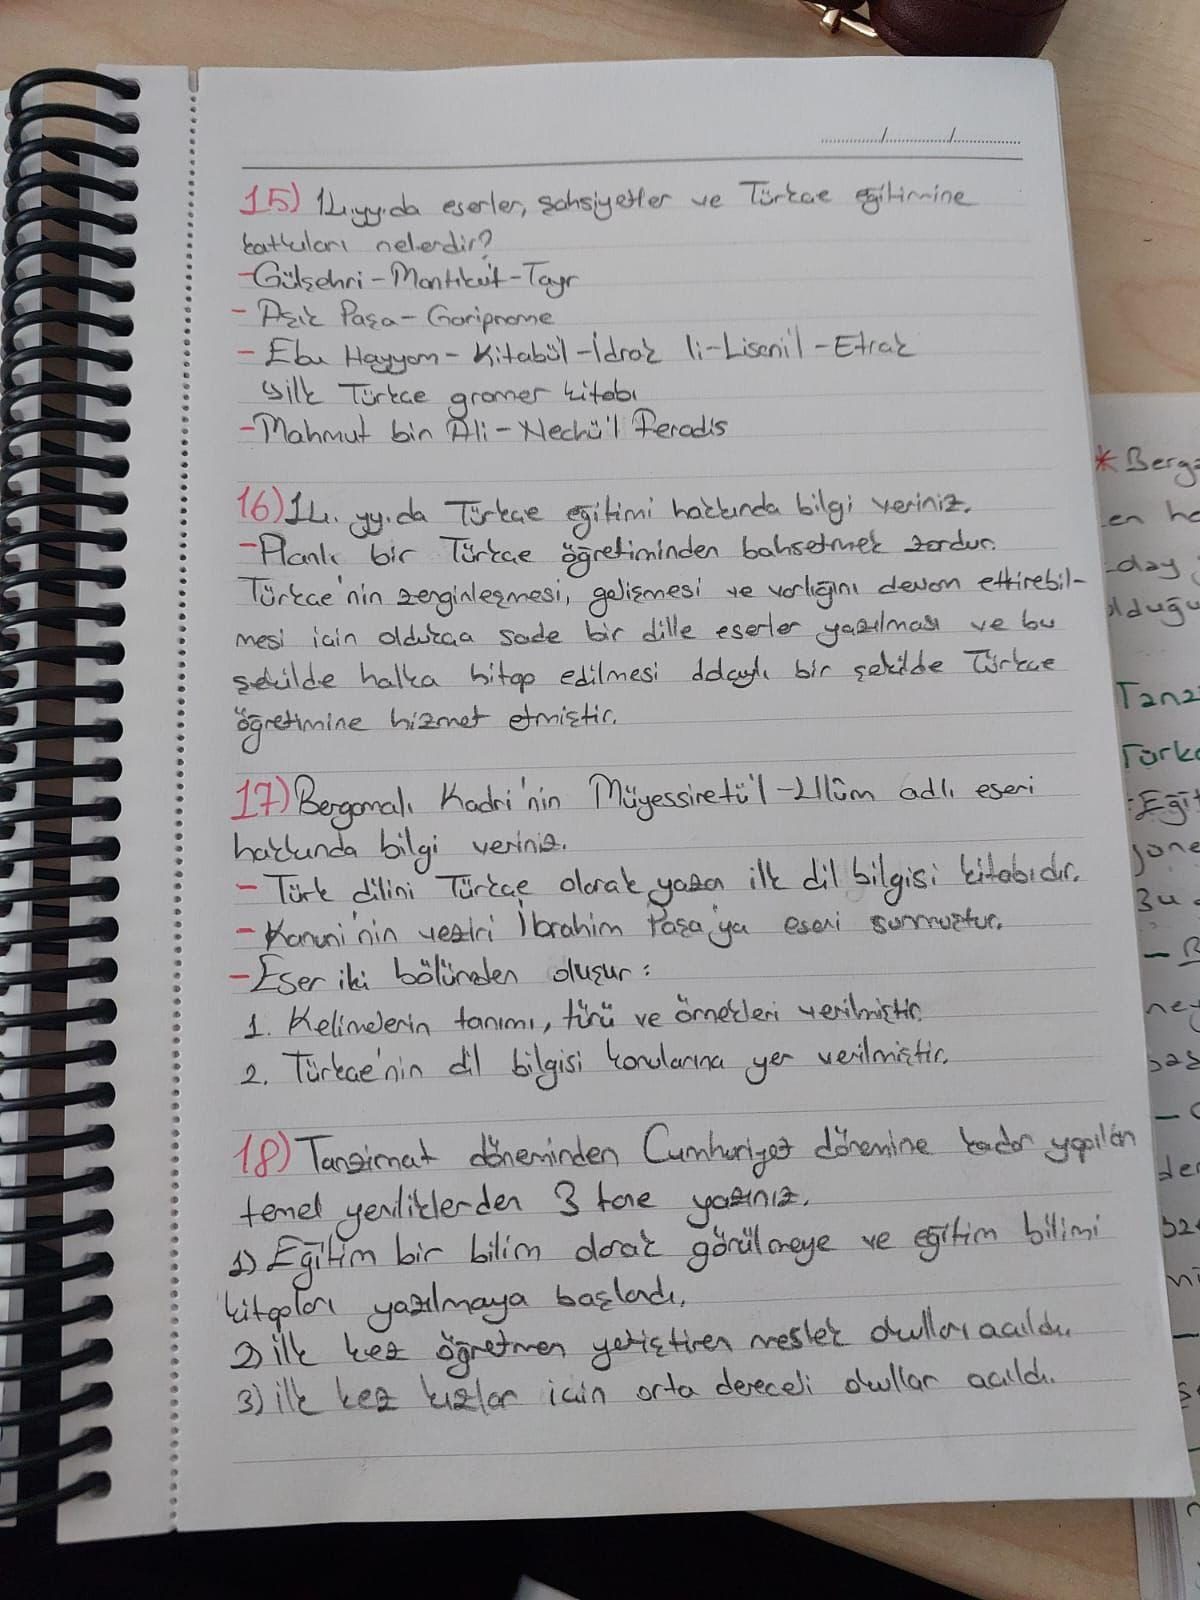 15) 14.yy.da eserler, şahsiyetler ve Türkçe eğitimine
katkıları nelerdir?
- Gülşehri - Mantıku't-Tayr
- Aşık Paşa - Garipname
- Ebu Hayyam - Kitabül-İdrak li-Lisani'l-Etrak
↳ ilk Türkçe gramer kitabı
- Mahmut bin Ali - Nechü'l Feradis
16) 14. yy.da Türkçe eğitimi hakkında bilgi veriniz.
- Planlı bir Türkçe öğretiminden bahsetmek zordur.
Türkçe'nin zenginleşmesi, gelişmesi ve varlığını devam ettirebil-
mesi için oldukça sade bir dille eserler yazılması ve bu
şekilde halka hitap edilmesi dolaylı bir şekilde Türkçe
öğretimine hizmet etmiştir.
17) Bergamalı Kadri'nin Müyessiretü'l-Ulûm adlı eseri
hakkında bilgi veriniz.
- Türk dilini Türkçe olarak yazan ilk dil bilgisi kitabıdır.
- Kanuni'nin veziri İbrahim Paşa'ya eseri sunmuştur.
- Eser iki bölümden oluşur:
1. Kelimelerin tanımı, türü ve örnekleri verilmiştir.
2. Türkçe'nin dil bilgisi konularına yer verilmiştir.
18) Tanzimat döneminden Cumhuriyet dönemine kadar yapılan
temel yeniliklerden 3 tane yazınız.
1) Eğitim bir bilim olarak görülmeye ve eğitim bilimi
kitapları yazılmaya başlandı.
2) İlk kez öğretmen yetiştiren meslek okulları açıldı.
3) İlk kez kızlar için orta dereceli okullar açıldı.
* Berga
en he
olduğu
Tanz
Türkç
Eğit